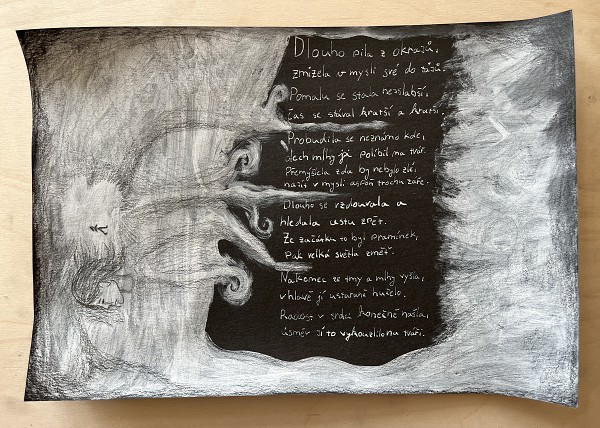 Dlouho pila z okrajů,
zmizela v mysli své do tájů.
Pomalu se stala nejslabší,
čas se stával kratší a kratší.
Probudila se neznámo kde,
dech mlhy jí políbil na tvář.
Přemýšlela zda by nebylo zlé,
najít v mysli aspoň trochu záře.
Dlouho se vzdouvala a
hledala cestu zpět.
Ze začátku to byl pramínek,
pak velká světla změť.
Nakonec ze tmy a mlhy vyšla,
v hlavě jí ustaraně hučelo.
Radost v srdci konečně našla,
úsměv jí to vykouzlilo na tváři.